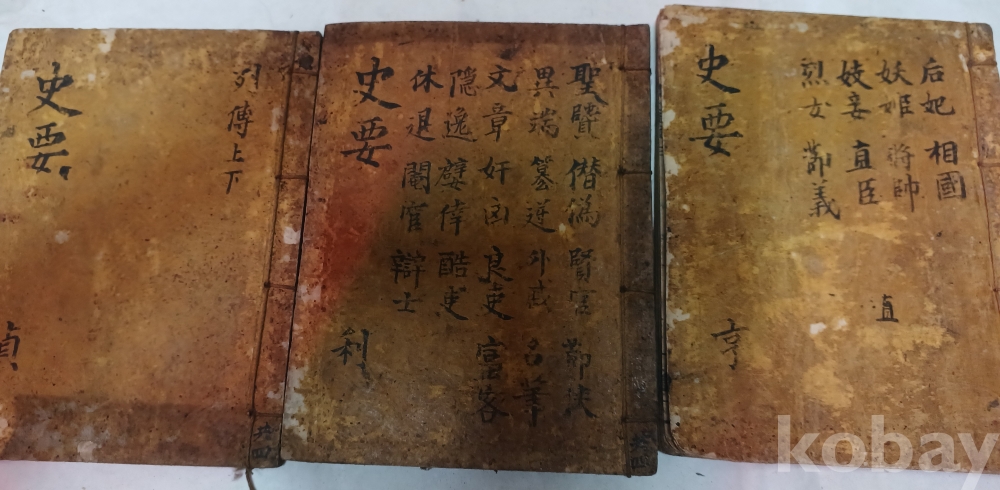 后妃 相國
妖姬 將帥
妓妾 直臣
直
烈女 節義
史要
亨
聖賢 僭僞 賢宦 節俠
異端 篡逆 外戚 名筆
文章 奸凶 良吏
隱逸 嬖倖 酷吏
休退 閹宦 辯士
史要
利
共四
列傳上下
史要
貞
共四
kobay